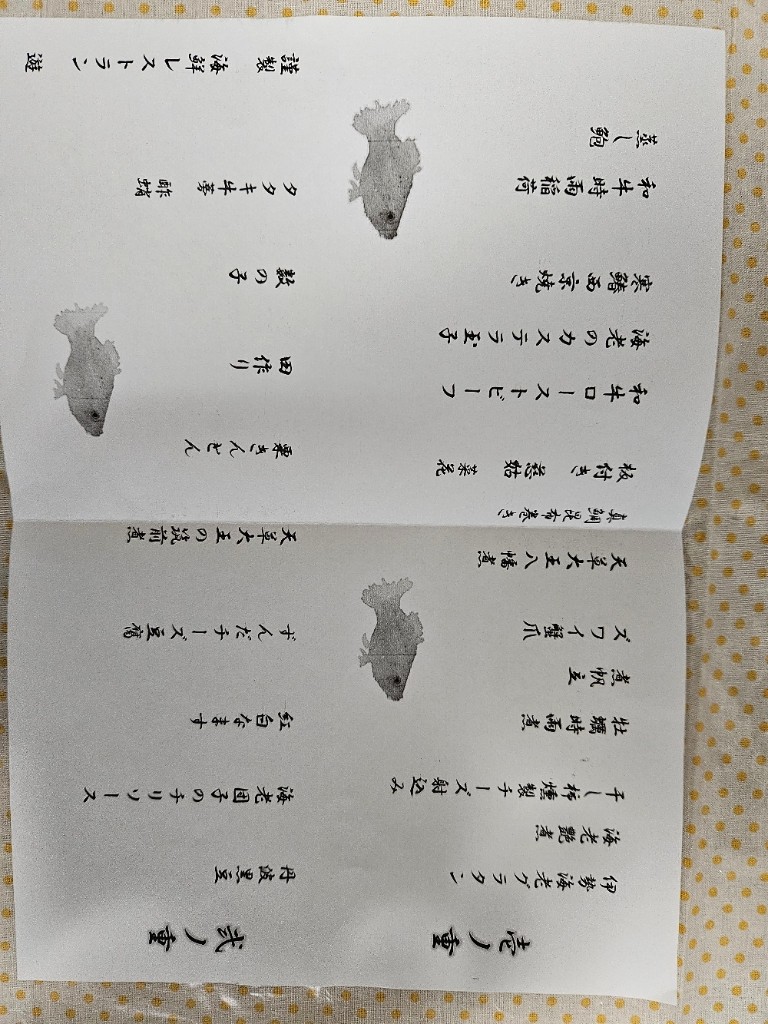 壱ノ重
伊勢海老グラタン
海老艶煮
干し柿燻製チーズ射込み
牡蠣時雨煮
煮帆立
ズワイ蟹爪
天草大王八幡煮
真鯛昆布巻き
板付き 慈姑 菜花
和牛ローストビーフ
海老のカステラ玉子
寒鰆西京焼き
和牛時雨稲荷
蒸し鮑
弐ノ重
丹波黒豆
海老団子のチリソース
紅白なます
ずんだチーズ豆腐
天草大王の筑前煮
栗きんとん
田作り
数の子
タタキ牛蒡 酢蛸
謹製 海鮮レストラン 遊